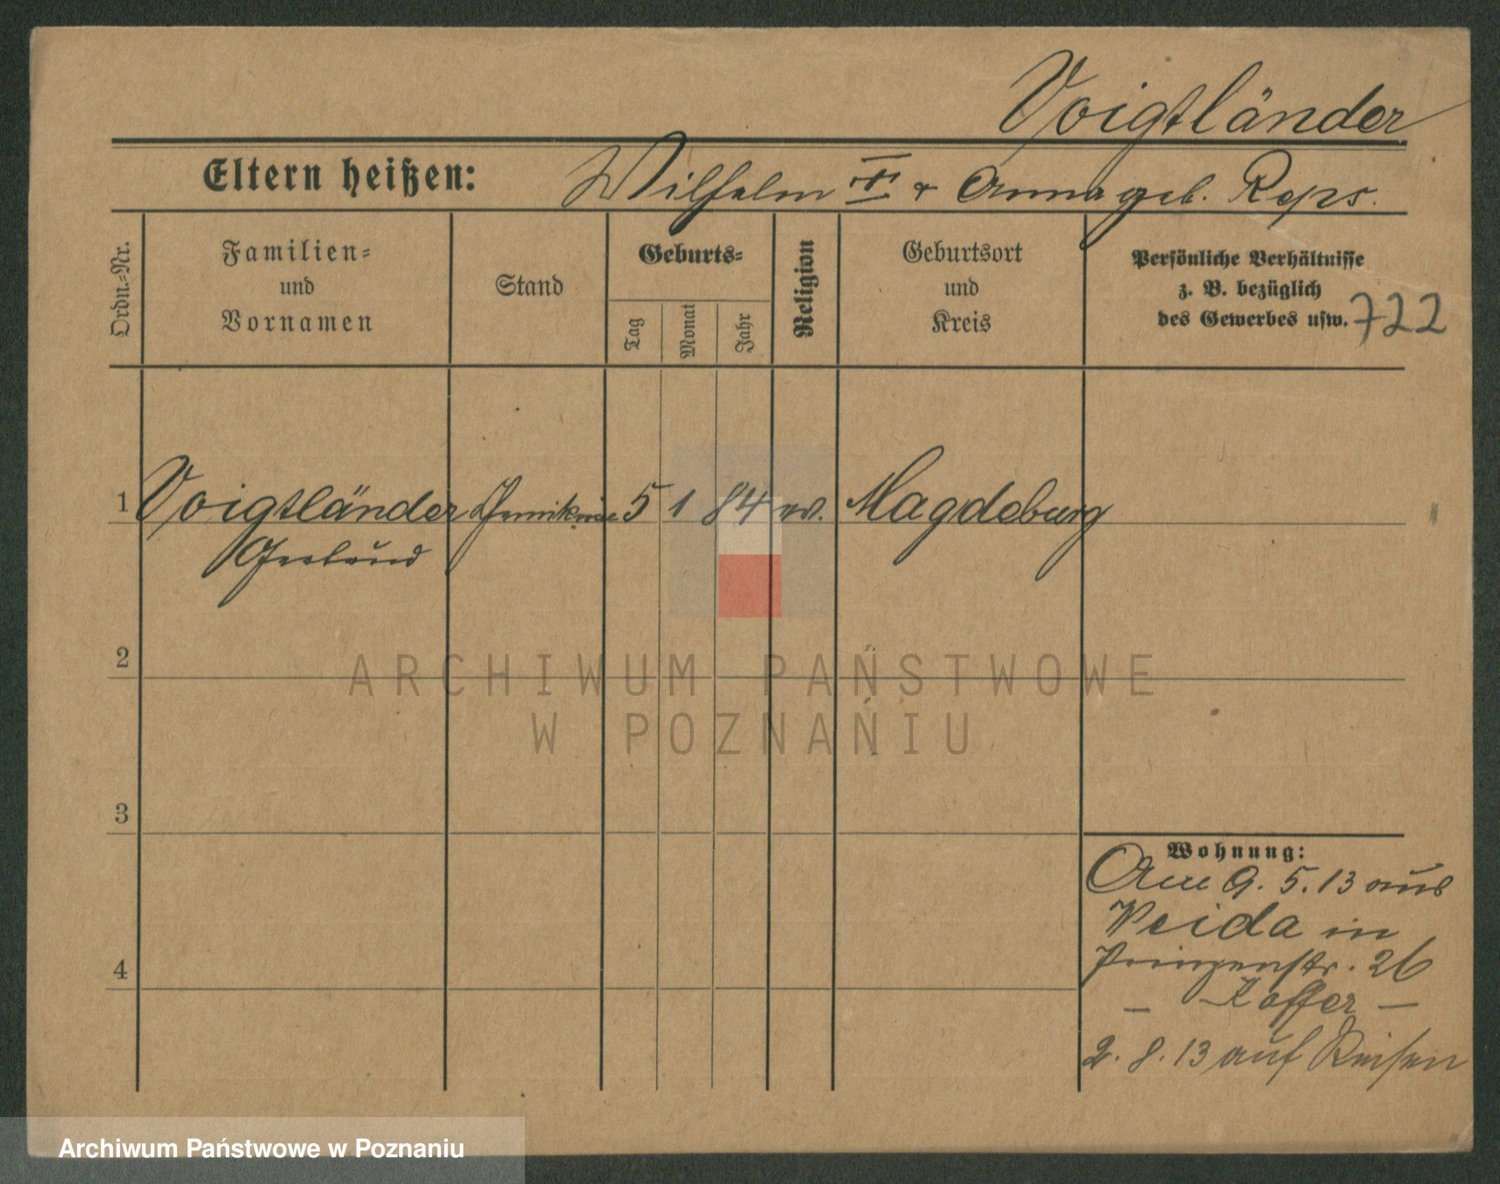 Voigtländer
Eltern heißen: Wilhelm + Anna geb. Reps.
Ordn.-Nr.
Familien-
und
Vornamen
Stand
Geburts-
Tag
Monat
Jahr
Religion
Geburtsort
und
Kreis
Persönliche Verhältnisse
z. B. bezüglich
des Gewerbes usw.
722
1 Voigtländer 5 1 84 ev. Magdeburg
2
3
4
Wohnung:
Am 9. 5. 13 aus
Weida in
Prinzenstr. 26
— Koffer —
2. 8. 13 auf Reisen
ARCHIWUM PAŃSTWOWE
W POZNANIU
Archiwum Państwowe w Poznaniu